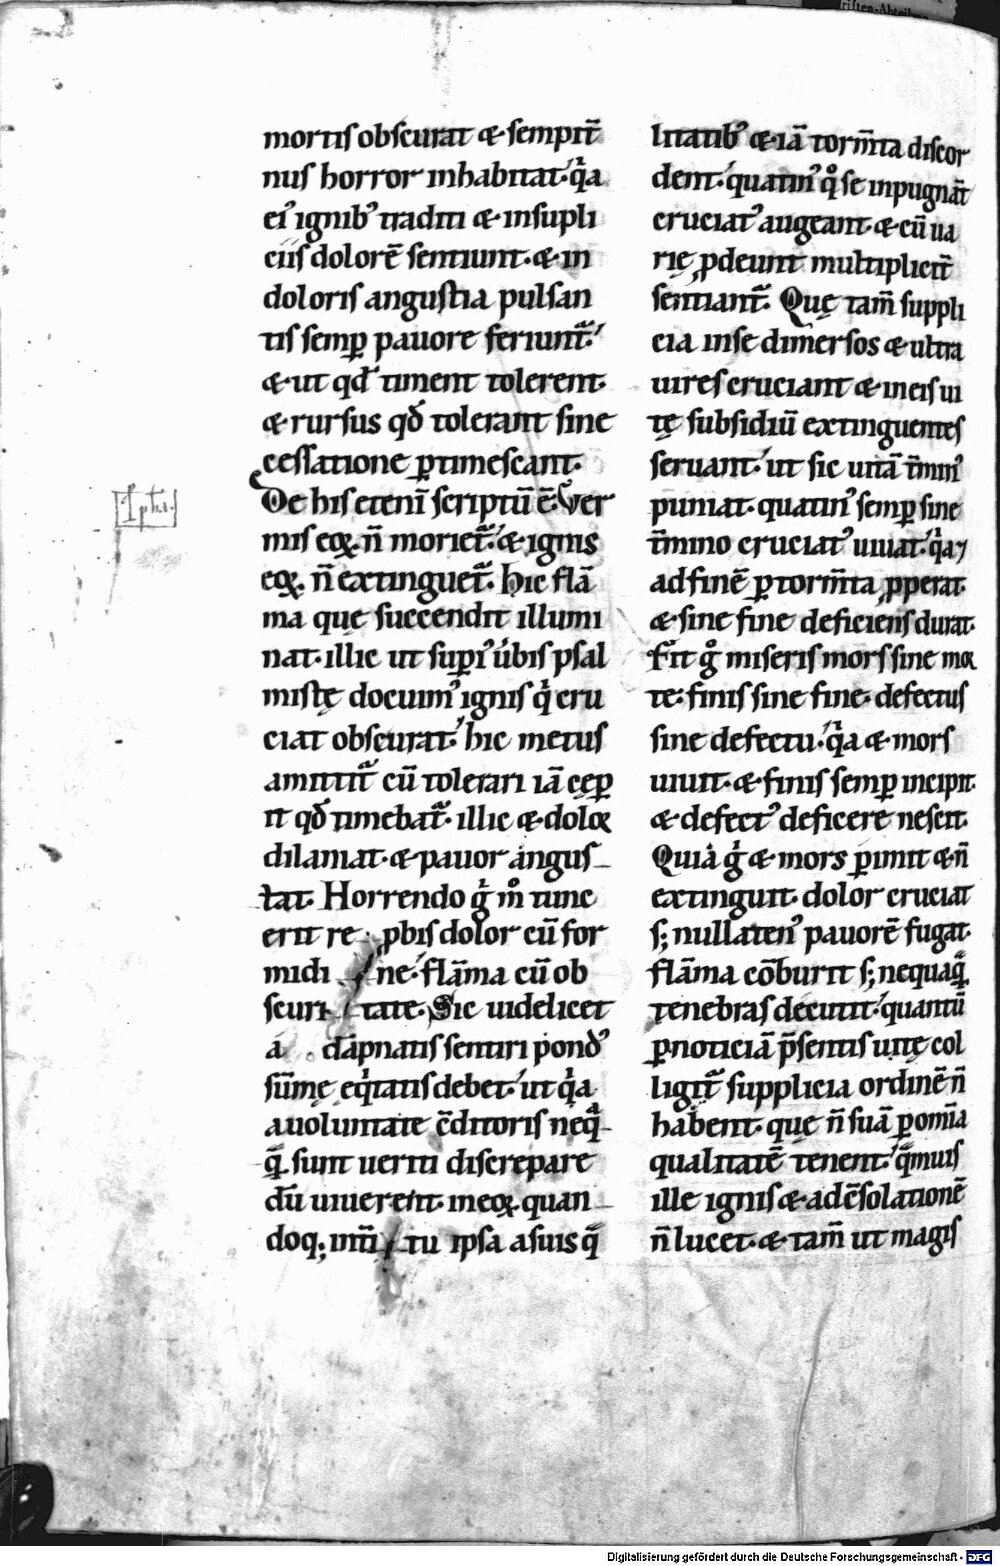 mortis obscurat & sempit̄
nus horror inhabitat. qͥa
eiꝰ ignibꝰ traditi & insupli
ciis dolorē sentiunt. & in
doloris angustia pulsan
tis semꝑ pauore feriunt᷑.
& ut qd̄ timent tolerent.
& rursus qd̄ tolerant sine
cessatione ꝑtimescant.
De his etenī scriptū ē. Ver
mis eoꝝ n̄ moriet᷑. & ignis
eoꝝ n̄ extinguet᷑. hic flā
ma quę succendit illumi
nat. illic ut supͥꝰ uͥbis psal
mistę docuimꝰ ignis qͥ cru
ciat obscurat. hic metus
amittit᷑ cū tolerari iā cęꝑ
it qd̄ timebat᷑. illic & doloꝛ
dilaniat. & pauor angus
tat. Horrendo gͥ mͦ tunc
erit re ꝓbis dolor cū for
midi ne. flāma cū ob
scuri tate. Sic uidelicet
a dāpnatis sentiri pondꝰ
sūmę eqͥtatis debet. ut qͥa
auoluntate c̄ditoris neqͣ
qͣ sunt ueriti discrepare
dū uiuerent. in eoꝝ quan
doq; int̄i tu ipsa asuis qͣ
litatibꝰ & iā torm̄ta discor
dent. quatinꝰ qͦ se inpugnāt
cruciatꝰ augeant. & cū ua
rię ꝓdeunt multiplicit̄
sentiant᷑. Quę tam̄ suppli
cia inse dimersos & ultra
uires cruciant & in eis ui
tę subsidiū extinguentes
seruant. ut sic uitā t̄minꝰ
puniat. quatinꝰ semꝑ sine
t̄mino cruciatꝰ uiuat. qͥa ⁊
ad finē ꝑ torm̄ta ꝓperat.
& sine fine deficiens durat.
Fit gͦ miseris mors sine moꝛ
te. finis sine fine. defectus
sine defectu. qͥa & mors
uiuit. & finis semꝑ incipit.
& defectꝰ deficere nescit.
Quia gͥ & mors ꝑimit & n̄
extinguit. dolor cruciat
s; nullatenꝰ pauorē fugat.
flāma cōburit s; nequaqͣ
tenebras decutit. quantū
ꝑ noticiā p̄sentis uitę col
ligit᷑ supplicia ordinē n̄
habent. quę n̄ suā ꝑ omīa
qualitatē tenent. qͣmuis
ille ignis & ad c̄solationē
n̄ lucet. & tam̄ ut magis
Digitalisierung gefördert durch die Deutsche Forschungsgemeinschaft - DFG